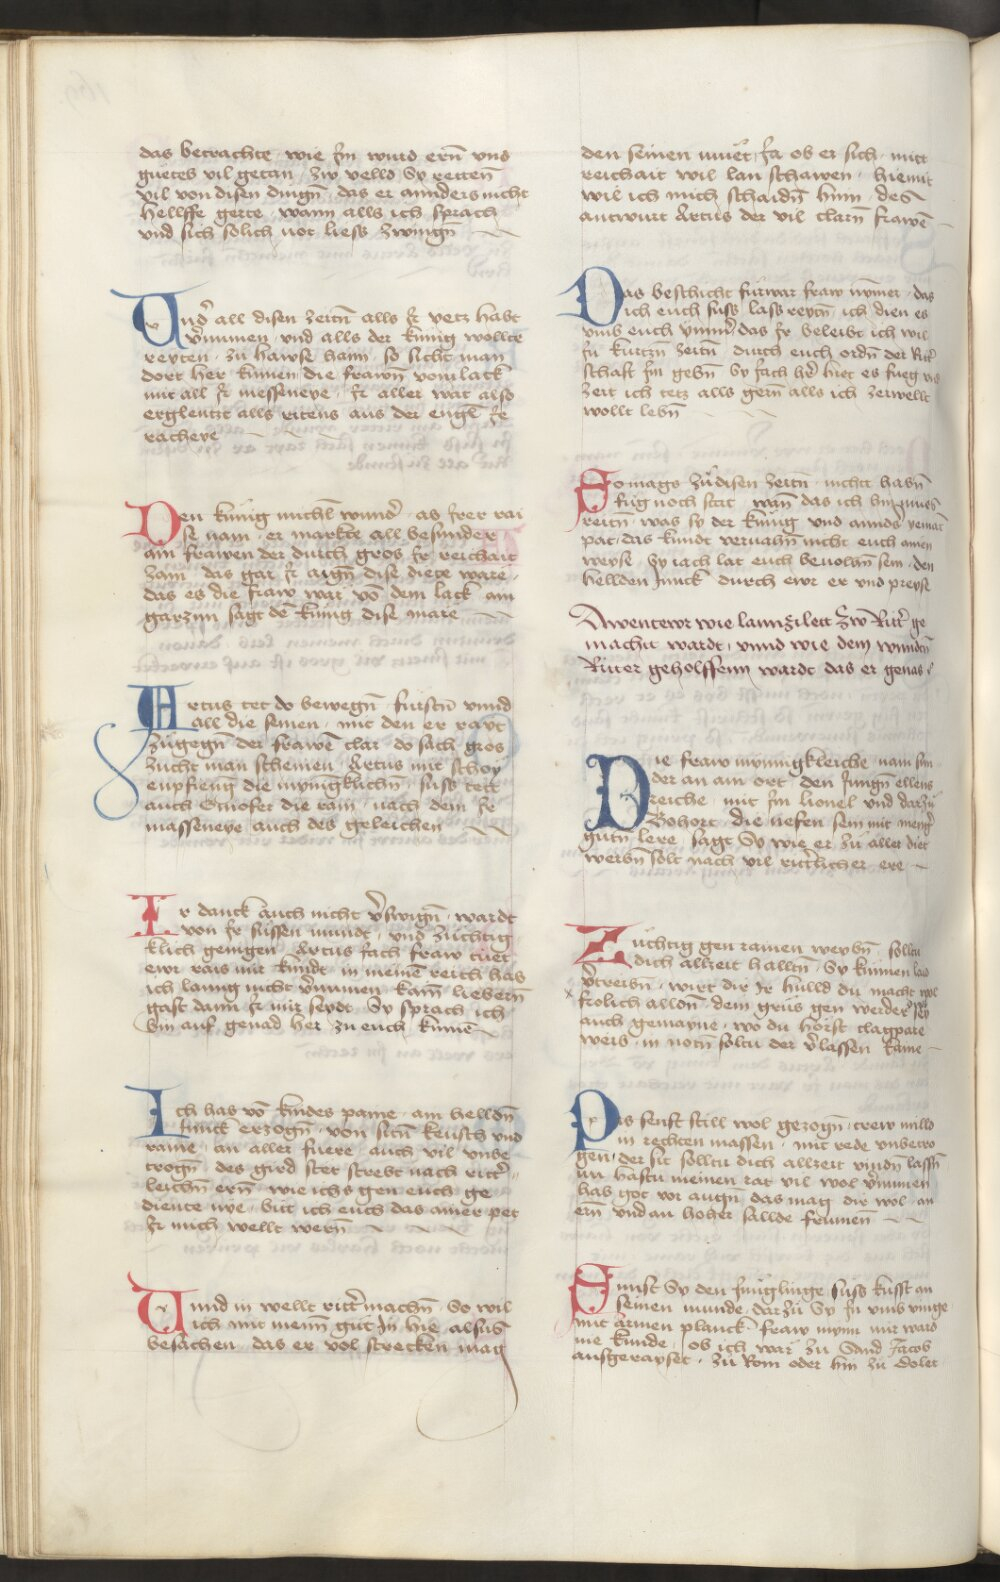 das betrachte · wie Im wurd ern̄ vnd
guetes vil getan · Zw veld Sy retten
vil von disen dingn̄ · das er annders nicht
hellffe gerte · wann alls ich sprach
vnd sich solich not liess zwingn̄
Vnd' all disen zeitn̄ alls Ir yetz habt
v'nummen · vnd alls der künig wollte
reyten · zu hawse hann · so sicht man
dort her kumen die frawn̄ vom lack
mit all Ir messeneye · Ir aller wat also
erglentzt alls ritens aus der engl̄ Ir
racheye
Den künig michl̄ wund' · as Irer rai
se nam · er markte all besunder
am frawen der durch gros Ir reichait
zam · das gar Ir aign̄ dise diete ware ·
das es die fraw war vō dem lack · am
garzun sagt dē künig dise mare
Artus tet do bewegn̄ · fürstn̄ vnnd
all die seinen · mit den er rayt
zugegn̄ der frawē clar · do sach gros
zucht man scheinen · Artus mit schoy
enpfieng die mynnigklichn̄ · suss tett
auch Ginofer die rain · nach dem Ir
masseneye auch des geleichen
Ir danck auch nicht v'swign̄ · wardt
von Ir süssen mundt · vnd züchtig
klich genigen · Artus sach fraw tuet
ewr rais mir kundt · in meinē reich has
ich lanng nicht v'nummen · kain liebern̄
gast dann Ir mir seydt · Sy sprach ich
bin auf genad her zu euch kumē
Ich has vō kindes pame · am helldn̄
Junck erzogn̄ · von sitn̄ keusch vnd
rame · an aller fuere · auch vil vnbe
trogn̄ · des gird stet strebt nach ritt'
leichn̄ ern̄ · wie ichs gen euch ge
diente nye · bitt ich euch das ainer pet
Ir mich wellt wern̄
Vnnd in wellt ritt' machn̄ · So wil
ich mit meim̄ gut In hie alsus
besachen · das er vol strecken mag
den seinen muet · Ja ob er sich · mitt
reichait wil lan schawen · hiemit
wil ich mich schaidn̄ hinn · des
antwurt Artus der vil clarn̄ frawē
Das beschicht fürwar fraw nymer · das
ich euch suss lass reytn̄ · ich dien es
vmb euch ymm' · das Ir beleibt ich wil
In kurtzn̄ zeitn̄ · durch euch ordn̄ der Ritt'
schaft Im gebn̄ · Sy sach h'r hiet es fueg
zeit ich tetz alls gern̄ alls ich zeiwellt
wollt lebn̄
So mags zudisen zeitn̄ · nicht habn̄
fug noch stat · wan̄ das ich hin mues
reitn̄ · was so der künig vnd annd's yemāt
pat · das kundt veruahn̄ nicht euch ainen
weyse · Sy iach lat euch beuolhn̄ sein · den
hellden Junck durch ewr er vnd preyse
Awentewr wie lannzilett Zw Ritt' ge
macht wardt · vnnd wie dem wundn̄
Ritter geholffenn wardt das er genas
Die fraw mynnigkleiche · nam sun
der an ain ort · den Jungn̄ ellens
reiche · mit Im lionel vnd darzu
Bohort · die nefen sein mit meng'
gutn̄ lere · sagt Sy wie er zu aller diet
werbn̄ solt nach vil rittlicher ere
Züchtig gen rainen weybn̄ · solltu
dich allzeit halltn̄ · Sy künnen laid
v'treibn̄ · wirt dir Ir hulld du macht wol
frolich alltn̄ · dem grus gen werder sey
auch gemayne · wo du hörst clagpare
weib · in notn̄ soltu der v'lassen kaine
Pis senft still wol gezogn̄ · trew milld
in rechten massen · mit rede vnbetro
gen · der sit solltu dich allzeit vindn̄ lassn̄
vn̄ hastu meinen rat vil wol v'nummen
hab got vor augn̄ · das mag dir wol an
ern̄ vnd an hoher sallde frumen̄
Sunst Sy den Jünglinge · suss kusst an
seinen munde · darzu Sy In vmb vinge
mit armen planck · fraw mynn mir ward
nie kunde · ob ich war zu Sand Jacob
ausgerayset · zu Rom oder hin zu dolet